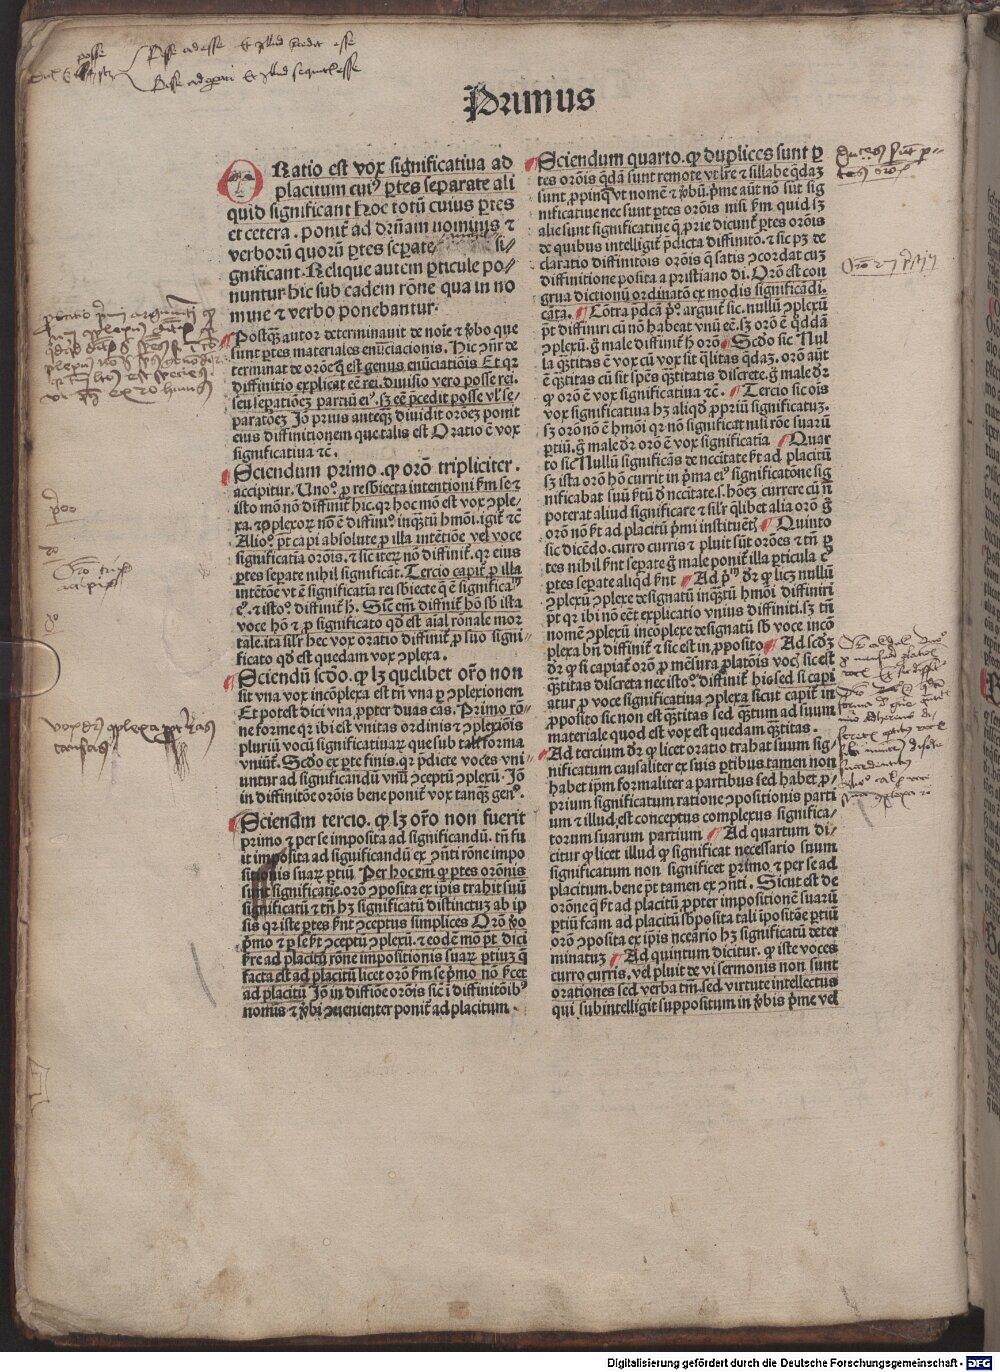 Primus
ORatio est vox significatiua ad
placitum cuiꝰ ꝑtes separate ali
quid significant hoc totū cuius ꝑtes
et cetera. ponit᷑ ad dr̄nam nominis ⁊
verborū quorū ꝑtes seꝑate si⸗
gnificant. Relique autem ꝑticule po⸗
nuntur hic sub eadem rōne qua in no
mine ⁊ verbo ponebantur.
Postq̄ȝ autor determinauit de noīe ⁊ v̓bo que
sunt ꝑtes materiales enūciacionis. Hic ꝯn̄r de
terminat de orōe q̄ est genus enūciatiōis Et qꝛ
diffinitio explicat eē rei. diuisio vero posse rei.
seu seꝑatiōeȝ partiū eiꝰ. sȝ eē p̄cedit posse vl̓ se⸗
paratōeȝ Iō prius anteq̄ȝ diuidit orōeȝ ponit
eius diffinitionem que talis est Oratio ē vox
significatiua ⁊c̄.
Sciendum primo. ꝙ orō tripliciter.
accipitur. Unoº. ꝓ re sbiecta intentioni ſm se ⁊
isto mō nō diffinit᷑ hic. qꝛ hoc mō est vox ꝯple⸗
xa. ⁊ ꝯplexoꝝ nō ē diffiniº inq̄ȝtū hmōi. igit᷑ ⁊c̄
Alioº. pt̄ capi absolute ꝓ illa intētiōe vel voce
significatīa orōis. ⁊ sic iterꝝ nō diffinit᷑. qꝛ eius
ꝑtes seꝑate nihil significāt. Tercio capit᷑ ꝓ illa
intētōe vt ē significatīa rei sbiecte q̄ ē significaᵐ
eiꝰ. ⁊ istoº. diffinit᷑ h̄. Sic em̄ diffinit᷑ hō sb ista
voce hō ⁊ ꝓ significato qd̓ est aīal rōnale mor
tale. ita sil̓r hec vox oratio diffinit᷑ ꝓ suo signi⸗
ficato qd̓ est quedam vox ꝯplexa.
Sciendū scd̓o. ꝙ lȝ quelibet or̄o non
sit vna vox incōplexa est tn̄ vna ꝑ ꝯplexionem
Et potest dici vna ꝓpter duas cās. Primo rō⸗
ne forme qꝛ ibi est vnitas ordinis ⁊ ꝯplexiōis
pluriū vocū significatiuaꝝ que sub tali forma
vniūt᷑. Scd̓o ex ꝑte finis. qꝛ p̄dicte voces vni⸗
untur ad significandū vnū ꝯceptū ꝯplexū. Iō
in diffinitōe orōis bene ponit᷑ vox tanq̄ȝ genꝰ.
Sciendm̄ tercio. ꝙ lȝ or̄o non fuerit
primo ⁊ per se imposita ad significandū. tn̄ fu
it imposita ad significandū ex ꝯn̄ti rōne impo
sitionis suaꝝ ꝑtiū. Per hoc em̄ ꝙ ꝑtes orōnis
sunt significatīe. orō ꝯposita ex ip̄is trahit suū
significatū ⁊ tn̄ hȝ significatū distinctuȝ ab ip̄
sis qꝛ iste ꝑtes hn̄t ꝯceptus simplices Orō v̓o
p̄mo ⁊ ꝑ se hȝ ꝯceptū ꝯplexū. ⁊ eodē mō pt̄ dici
hr̄e ad placitū rōne impositionis suaꝝ ꝑtiuȝ q̄
facta est ad placitū licet orō ſm se p̄mo nō hȝcet
ad placitū Iō in diffiōe orōis sic̄ ī diffinitōibꝰ
nomīs ⁊ v̓bi ꝯuenienter ponit᷑ ad placitum.
Sciendum quarto. ꝙ duplices sunt ꝑ
tes orōis q̄dā sunt remote vt lr̄e ⁊ sillabe q̄daȝ
sunt ꝓpinq̄ vt nomē ⁊ v̓bū. p̄me aūt nō sūt sig
nificatiue nec sunt ꝑtes orōis nisi ſm quid sȝ
alie sunt significatiue q̄ ꝓprie dicunt᷑ ꝑtes orōis
de quibus intelligit᷑ p̄dicta diffinitō. ⁊ sic pȝ de
claratio diffinitōis orōis q̄ satis ꝯcordat cuȝ
diffinitione posita a pristiano di. Orō est con
grua dictionū ordinatō ex modis significādi.
cāta. Cōtra pdc̄am p̄º. arguit᷑ sic. nullū ꝯplexū
pt̄ diffiniri cū nō habeat vnū eē. sȝ orō ē q̄ddā
ꝯplexū. g̊ male diffinit᷑ h̄ orō Scd̓o sic Nul
la q̄ȝtitas ē vox cū vox sit q̄litas q̄daȝ. orō aūt
ē q̄ȝtitas cū sit spēs q̄ȝtitatis discrete. g̊ male dr̄
ꝙ orō ē vox significatiua ⁊c̄. Tercio sic oīs
vox significatiua hȝ aliqd̓ ꝓpriū significatuȝ.
sȝ orō nō ē hmōi qꝛ nō significat nisi rōe suarū
ꝑtiū. g̊ male dr̄ orō ē vox significatīa Quar
to sic Nullū significās de nccitate hȝt ad placitū
sȝ ista orō hō currit in p̄ma eiꝰ significatōne sig
nificabat suū ſctū d̓ nccitate. s. hōeȝ currere cū n̄
poterat aliud significare ⁊ sil̓r q̄libet alia orō g̊
orō nō hȝt ad placitū p̄mi instituentȝ Quinto
sic dicēdo. curro curris ⁊ pluit sūt orōes ⁊ tn̄ ꝑ
tes nihil hn̄t seꝑate g̊ male ponit᷑ illa ꝑticula c̄ꝰ
ꝑtes seꝑate aliqd̓ hn̄t Ad p̄ᵐ dr̄ ꝙ licȝ nullū
ꝯplexū ꝯplexe designatū inq̄ȝtū hmōi diffiniri
pt̄ qꝛ ibi nō eēt explicatio vnius diffiniti. sȝ tn̄
nomē ꝯplexū incōplexe designatū sb voce incō
plexa bn̄ diffinit᷑ ⁊ sic est in ꝓposito Ad scd̓ȝ
dr̄ ꝙ si capiat᷑ orō ꝓ mēsura platōnis vocȝ sic est
q̄ȝtitas discreta nec istoº. diffinit᷑ hic sed si capi
atur ꝓ voce significatiua ꝯplexa sicut capit᷑ in
ꝓposito sic non est q̄ȝtitas sed q̄ȝtum ad suum
materiale quod est vox est quedam q̄ȝtitas.
Ad tercium dr̄ ꝙ licet oratio trahat suum sig⸗
nificatum causaliter ex suis ꝑtibus tamen non
habet ip̄m formaliter a partibus sed habet ꝓ⸗
prium significatum ratione ꝯpositionis parti
um ⁊ illud est conceptus complexus significa⸗
torum suarum partium Ad quartum di⸗
citur ꝙ licet illud ꝙ significat necessario suum
significatum non significet primo ⁊ per se ad
placitum. bene pt̄ tamen ex ꝯn̄ti. Sicut est de
orōne q̄ hȝt ad placitū ꝓpter impositionē suarū
ꝑtiū sc̄am ad placitū sb̓posita tali ipositōe ꝑtiū
orō ꝯposita ex ip̄is nceārio hȝ significatū deter
minatuȝ Ad quintum dicitur. ꝙ iste voces
curro curris. vel pluit de vi sermonis non sunt
orationes sed verba tm̄. sed virtute intellectus
qui subintelligit suppositum in v̓bis p̄me vel
Digitalisierung gefördert durch die Deutsche Forschungsgemeinschaft - DFG